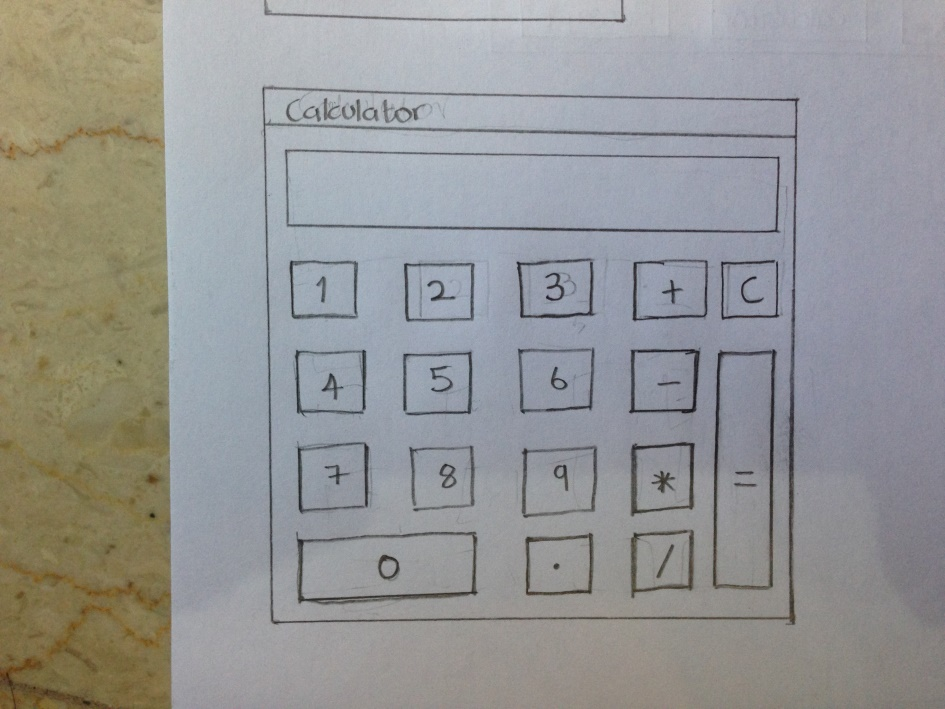 Calculator
1 2 3 + C
4 5 6 -
7 8 9 * =
0 . /